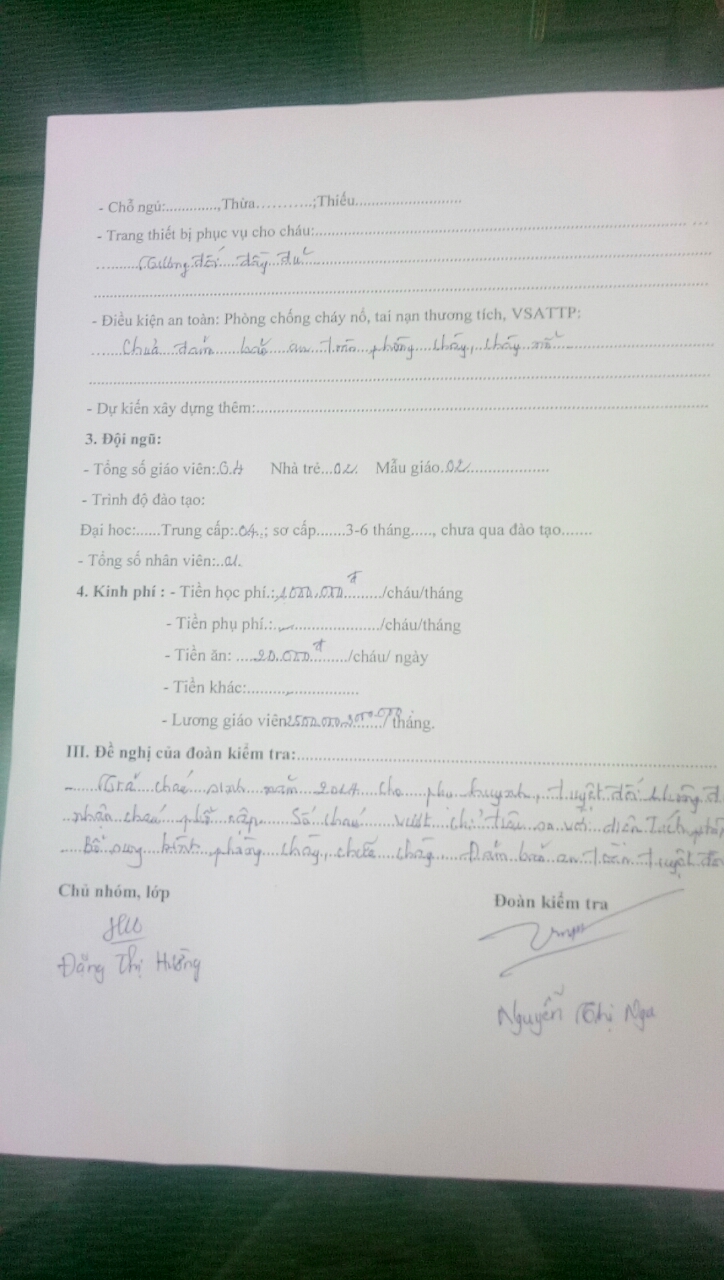 - Chỗ ngủ:.............,Thừa..............;Thiếu...........................
- Trang thiết bị phục vụ cho cháu:...........................................................
Tương đối đầy đủ
- Điều kiện an toàn: Phòng chống cháy nổ, tai nạn thương tích, VSATTP:
Chưa đảm bảo an toàn phòng cháy, cháy nổ
- Dự kiến xây dựng thêm:...........................................................
3. Đội ngũ:
- Tổng số giáo viên:.04 Nhà trẻ...02. Mẫu giáo.02....................
- Trình độ đào tạo:
Đại học:......Trung cấp:.04..; sơ cấp.......3-6 tháng....., chưa qua đào tạo.......
- Tổng số nhân viên:..01.
4. Kinh phí : - Tiền học phí.:.1000.000đ........./cháu/tháng
- Tiền phụ phí.:......................../cháu/tháng
- Tiền ăn: .....20.000đ........./cháu/ ngày
- Tiền khác:.........................
- Lương giáo viên2500.000,3000.000/tháng.
III. Đề nghị của đoàn kiểm tra:...........................................................
- Trả cháu sinh năm 2014 cho phụ huynh, tuyệt đối không
nhận cháu phổ cập. Số cháu vượt chỉ tiêu so với diện tích
Bổ sung bình phòng cháy, chữa cháy. Đảm bảo an toàn tuyệt
Chủ nhóm, lớp
Đoàn kiểm tra
Đặng Thị Hường
Nguyễn Thị Nga